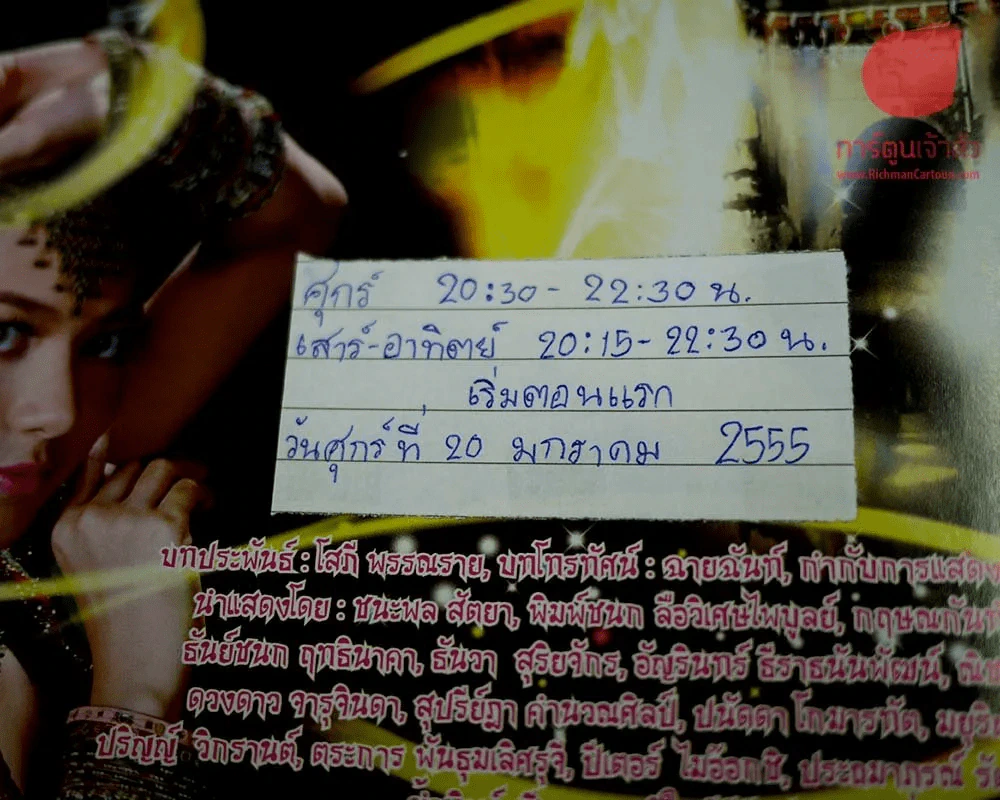 การ์ตูนเจ้าสัว
www.RichmanCartoon.com
ศุกร์ 20:30 - 22:30 น.
เสาร์-อาทิตย์ 20:15 - 22:30 น.
เริ่มตอนแรก
วันศุกร์ที่ 20 มกราคม 2555
บทประพันธ์ : โสภี พรรณราย, บทโทรทัศน์ : ฉายฉันท์, กำกับการแสดง
นำแสดงโดย : ชนะพล สัตยา, พิมพ์ชนก ลือวิเศษไพบูลย์, กฤษณกันท
ธันย์ชนก ฤทธินาคา, ธันวา สุริยจักร, อัญรินทร์ ธีราธนันพัฒน์,
ดวงดาว จารุจินดา, สุปรีย์ฎา คำนวณศิลป์, ปนัดดา โกมารทัต,
ปริญญ์ วิกรานต์, ตระการ พันธุมเลิศรุจี, ปีเตอร์ ไมอ๊อกชิ, ประถมาภรณ์